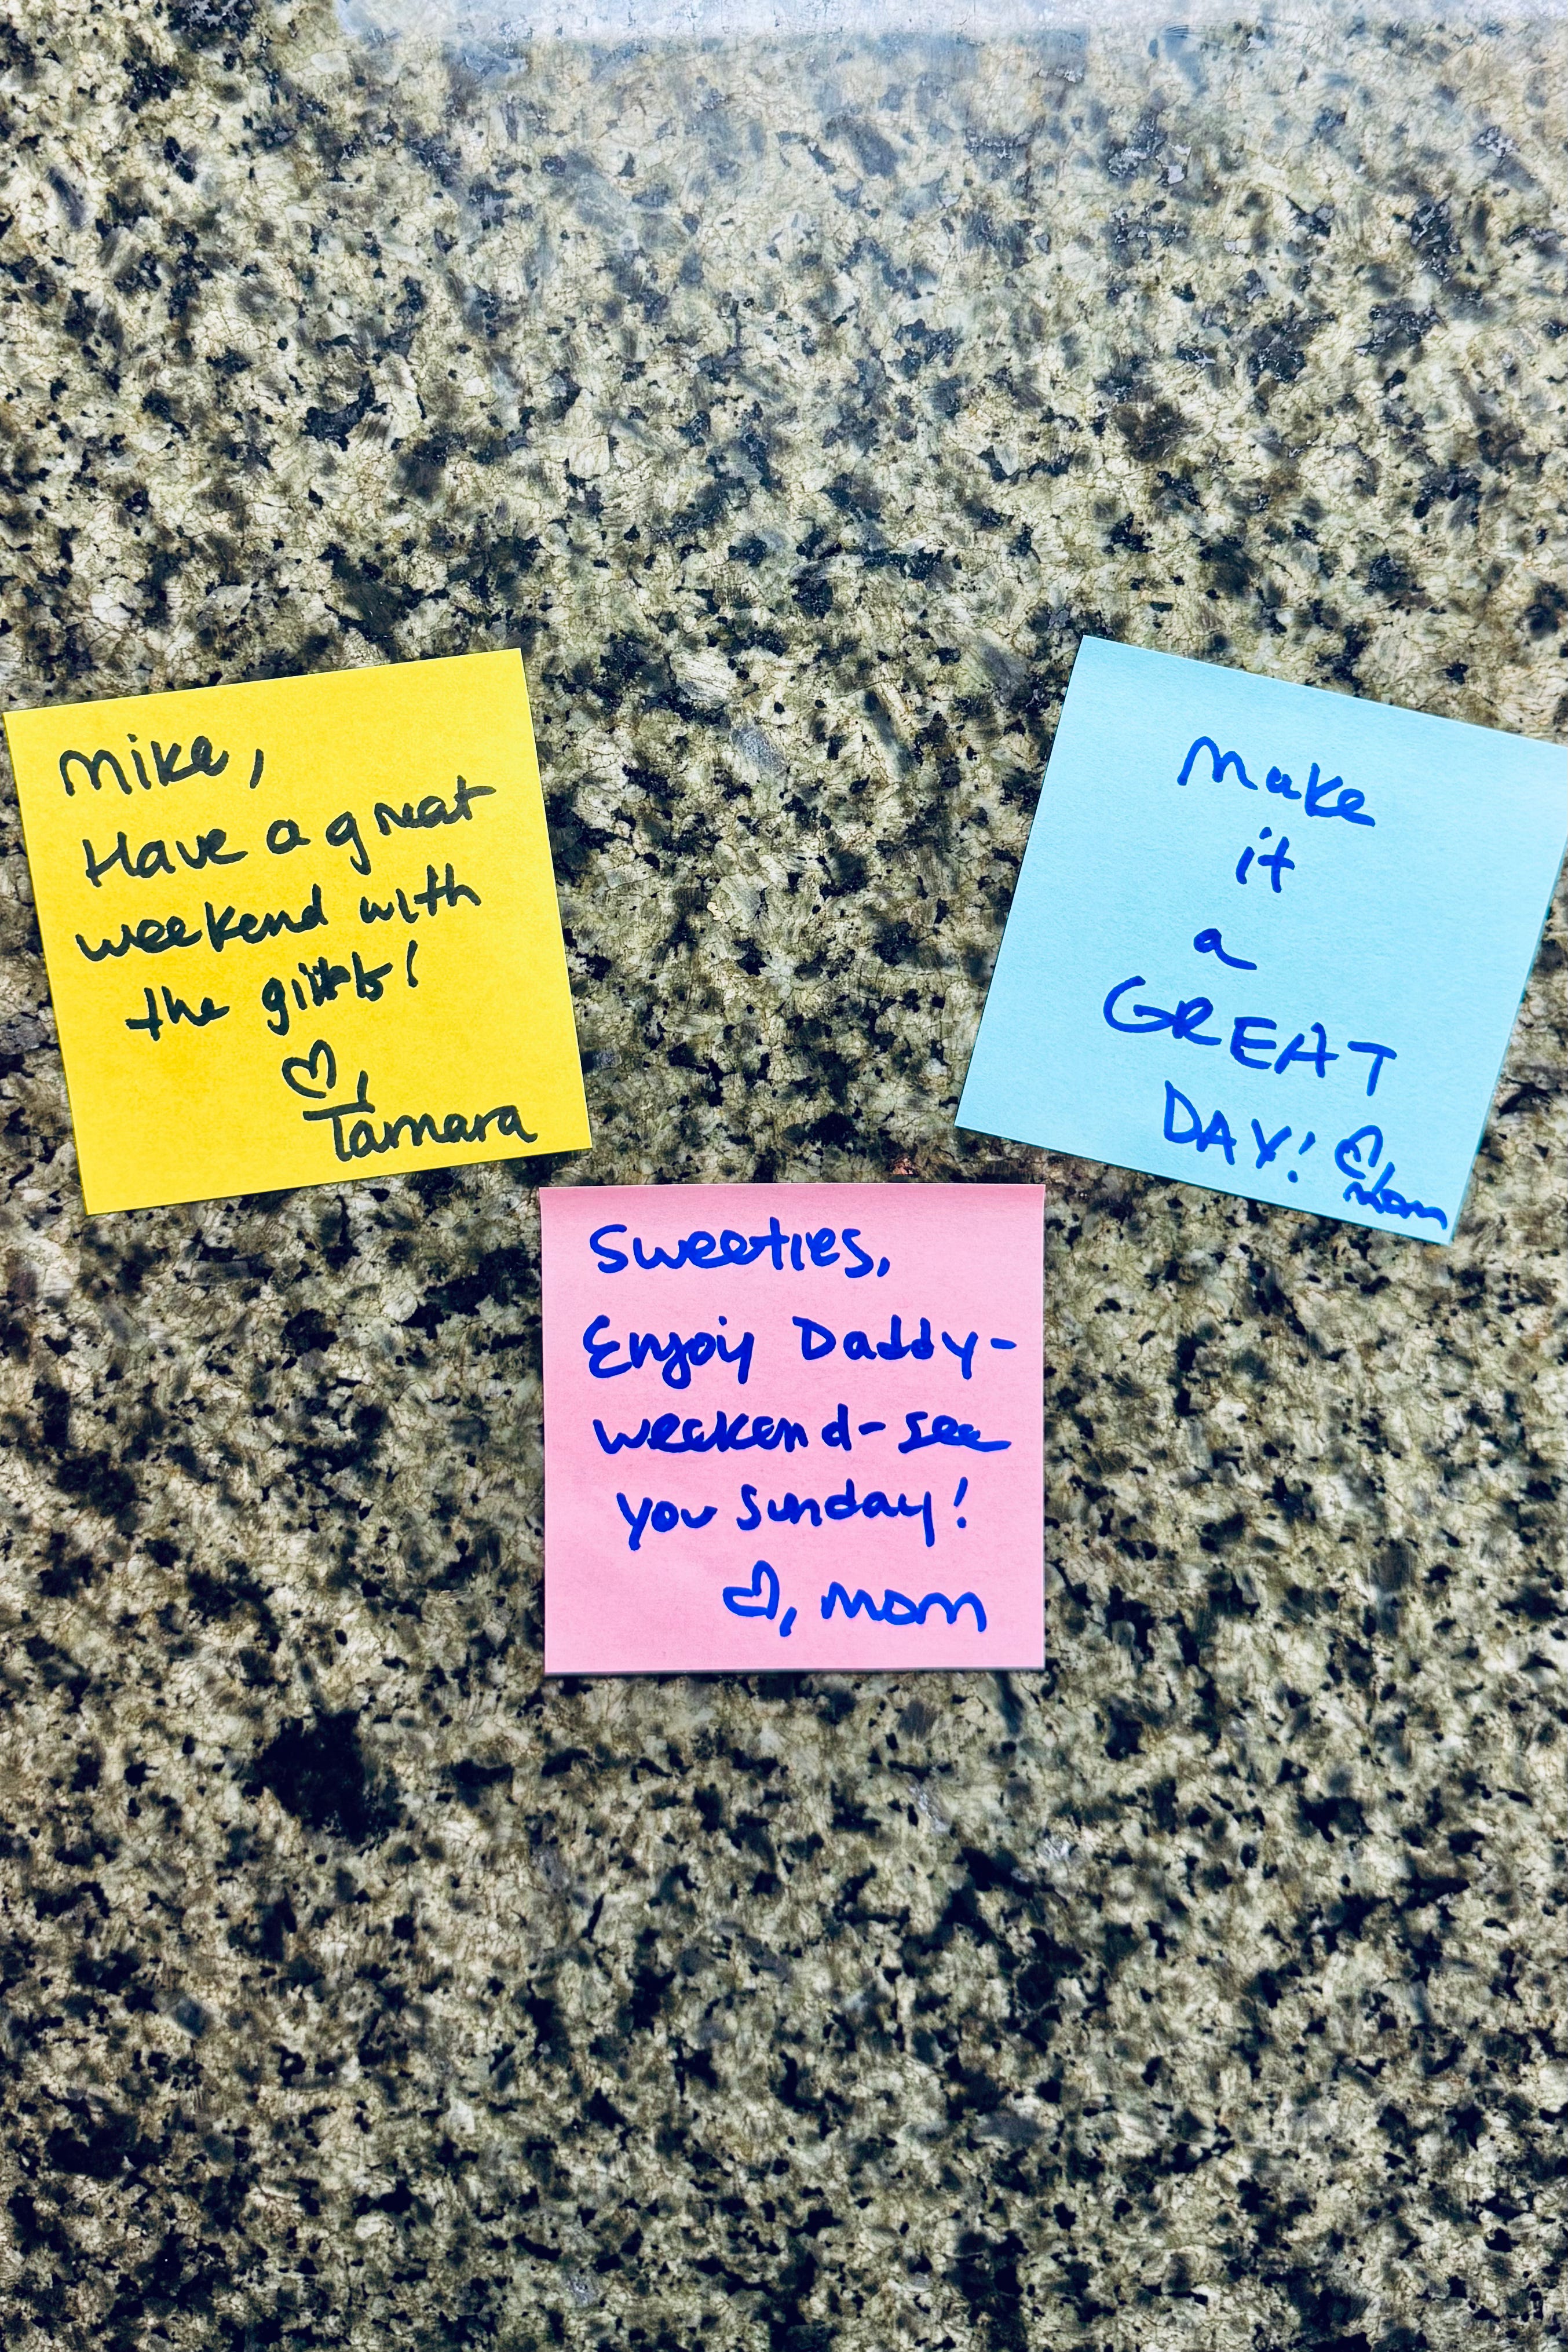 Mike,
Have a great
weekend with
the girls!
♡,
Tamara
Make
it
a
GREAT
DAY! ♡,
Mom
Sweeties,
Enjoy Daddy-
weekend-see
you Sunday!
♡, Mom